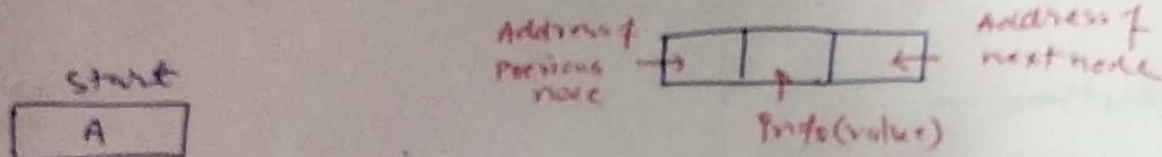 start
A
Address of
previous
node
Info(value)
Address of
next node